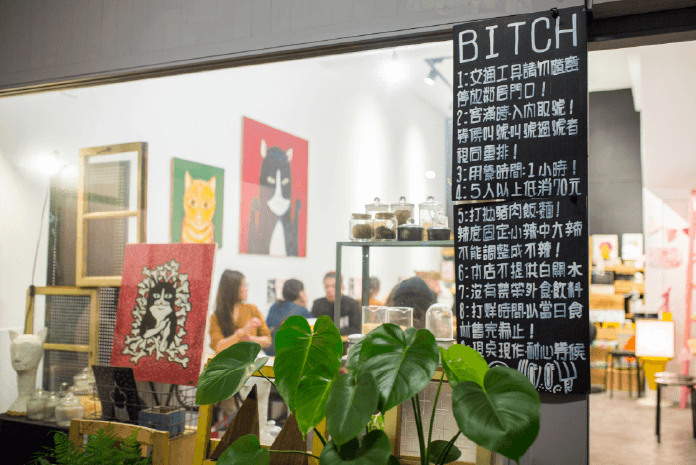 BITCH
1:交通工具請勿隨意
停放鄰居門口!
2:客滿時,入內取號!
等候叫號,叫號過號者
視同重排!
3:用餐時間:1小時!
4:5人以上低消70元
5:打拋豬肉飯.麵!
辣度固定:小辣中大辣
不能調整成不辣!
6:本店不提供白開水
7:沒有禁帶外食飲料
8:打烊時間以當日食
材售完為止!
現桌現作.耐心等候